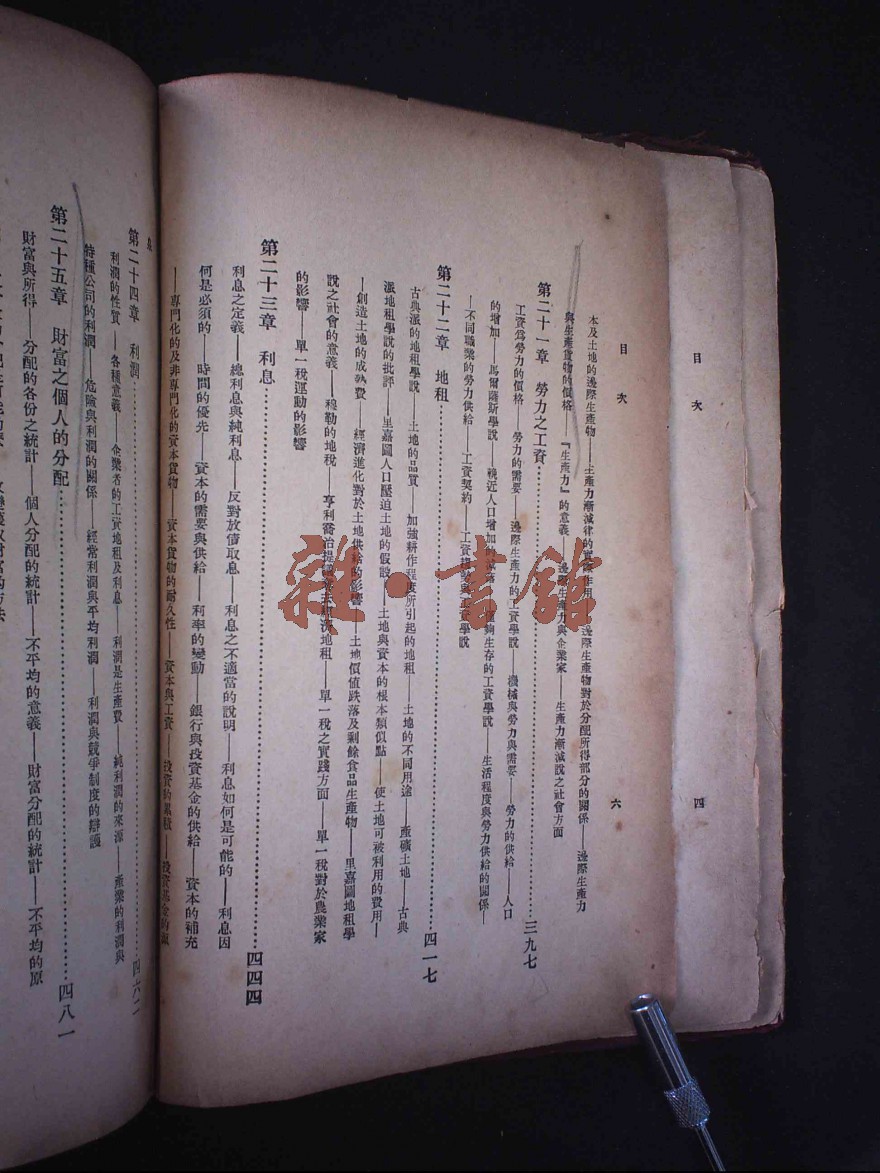 目次
四
目次
六
本及土地的邊際生產物——生產力漸減律的實際作用——邊際生產物對於分配所得部分的關係——邊際生產力
與生產貨物的價格——『生產力』的意義——邊際生產力與企業家——生產力漸減說之社會方面
第二十一章 勞力之工資……三九七
工資為勞力的價格——勞力的需要——邊際生產力的工資學說——機械與勞力與需要——勞力的供給——人口
的增加——馬爾薩斯學說——輓近人口增加的減落——僅夠生存的工資學說——生活程度與勞力供給的關係—
—不同職業的勞力供給——工資契約——工資基金與工資學說
第二十二章 地租……四一七
古典派的地租學說——土地的品質——加強耕作程度所引起的地租——土地的不同用途——產礦土地——古典
派地租學說的批評——里嘉圖人口壓迫土地的假設——土地與資本的根本類似點——使土地可被利用的費用—
—創造土地的成熟費——經濟進化對於土地供給的影響——土地價值跌落及剩餘食品生產物——里嘉圖地租學
說之社會的意義——穆勒的地稅——亨利喬治提議地租——單一稅之實踐方面——單一稅對於農業家
的影響——單一稅運動的影響
第二十三章 利息……四四四
利息之定義——總利息與純利息——反對放債取息——利息之不適當的說明——利息如何是可能的——利息因
何是必須的——時間的優先——資本的需要與供給——利率的變動——銀行與投資基金的供給——資本的補充
——專門化的及非專門化的資本貨物——資本貨物的耐久性——資本與工資——投資的累積——投資基金的
第二十四章 利潤……四六二
利潤的性質——各種意義——企業者的工資地租及利息——利潤是生產費——純利潤的來源——產業的利潤與
特種公司的利潤——危險與利潤的關係——經常利潤與平均利潤——利潤與競爭制度的辯護
第二十五章 財富之個人的分配……四八一
財富與所得——分配的各份之統計——個人分配的統計——不平均的意義——財富分配的統計——不平均的原
雜·書館